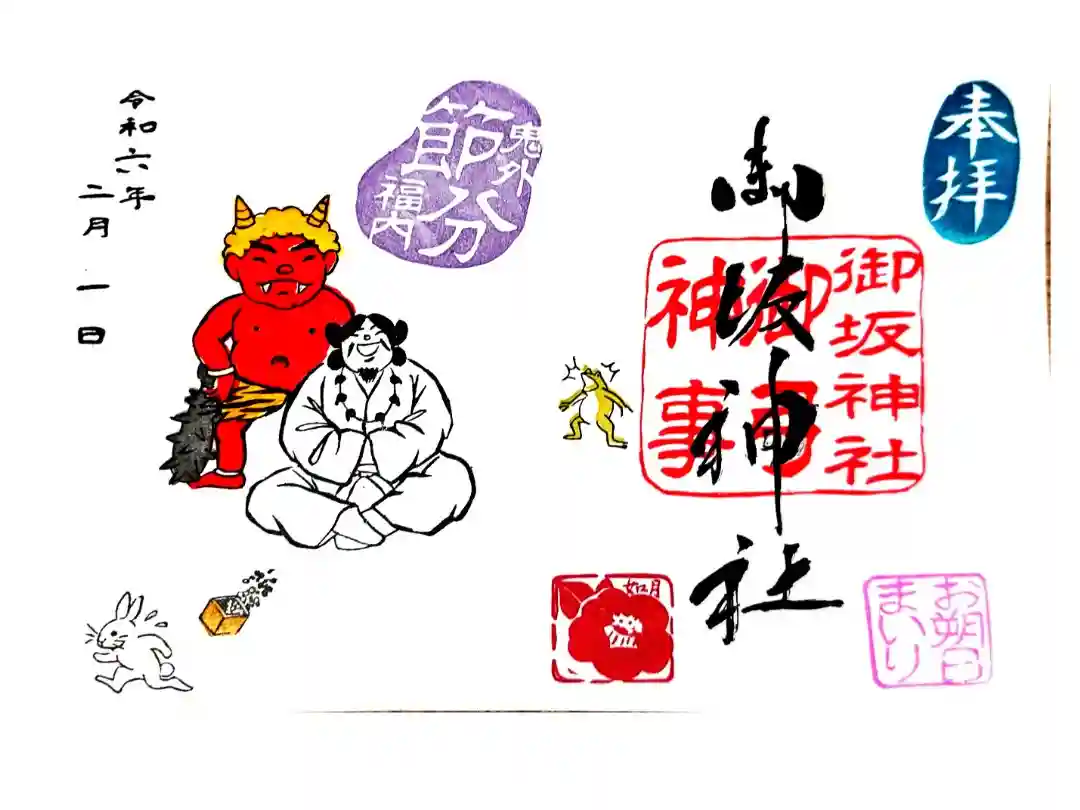 奉拝
御坂神社
御坂神社
御
神事
お朔日
まいり
如月
鬼外
節分
福内
令和六年
二月一日